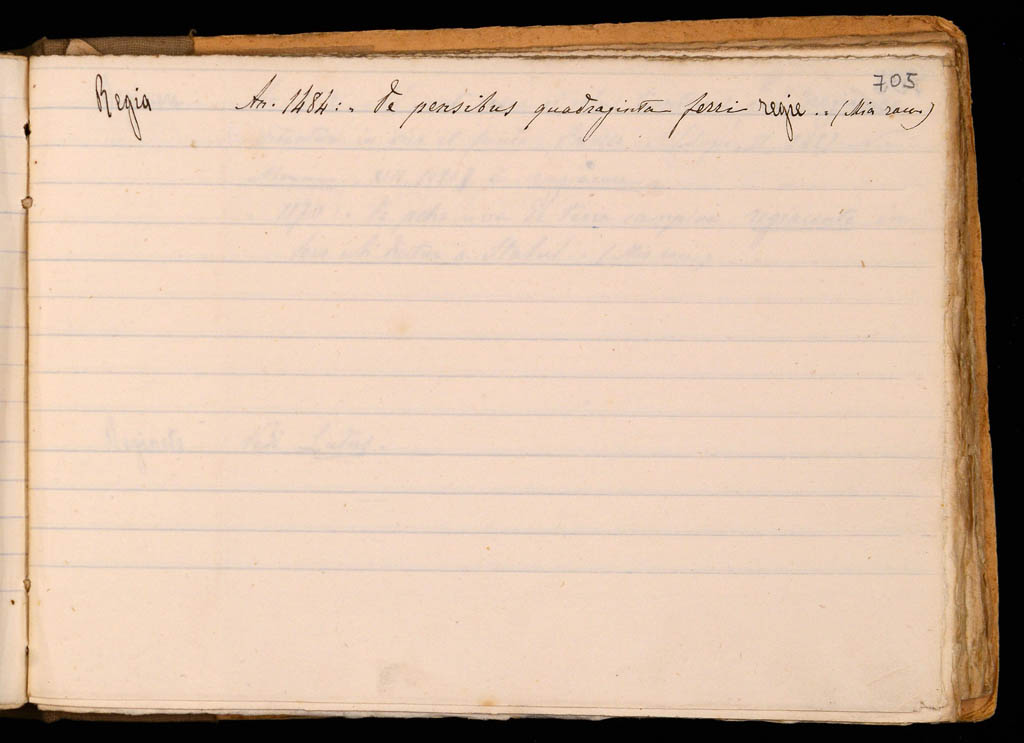 705
Regia An. 1484:. de pensibus quadraginta ferri regie .. (Mia racc.)